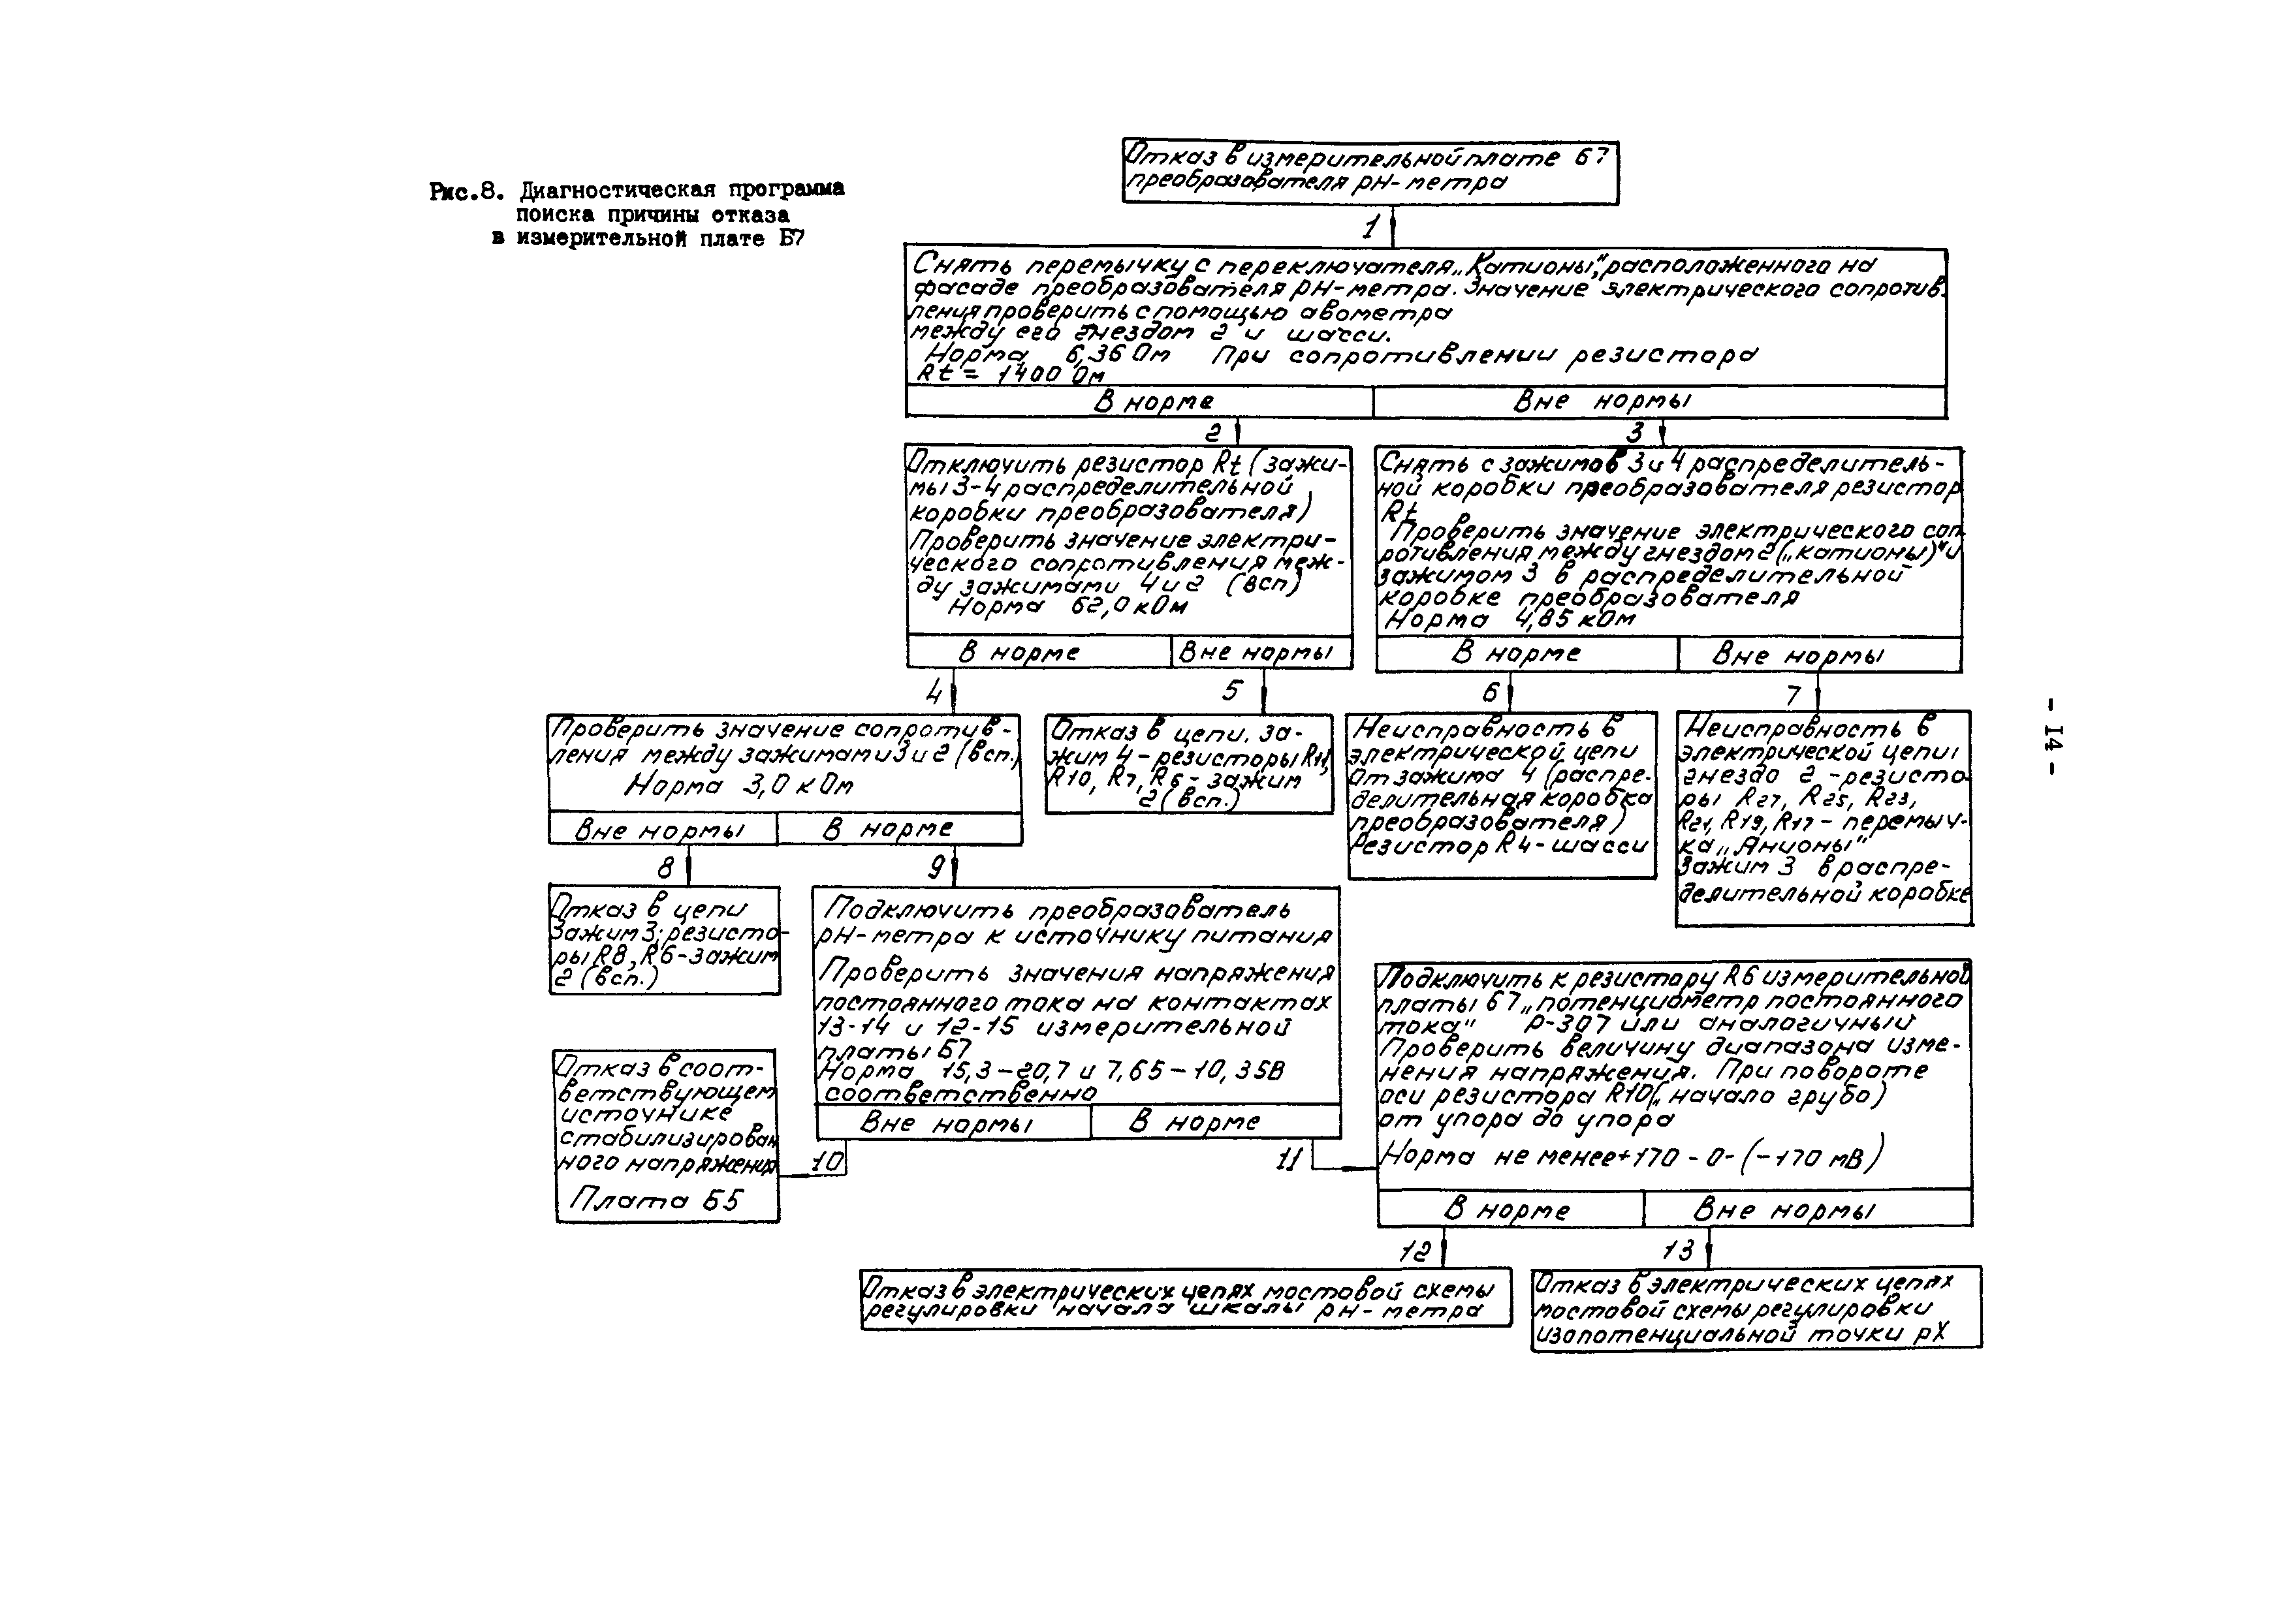 Рис.8. Диагностическая программа
поиска причины отказа
в измерительной плате Б7
Отказ в измерительной плате Б7
преобразователя рН-метра
1
Снять перемычку с переключателя „Катионы", расположенного на
фасаде преобразователя рН-метра. Значение электрического сопротив-
ления проверить с помощью авометра
между его гнездом 2 и шасси.
Норма 6,36 Ом При сопротивлении резистора
Rt = 1400 Ом
В норме
Вне нормы
2
3
Отключить резистор Rt (зажи-
мы 3-4 распределительной
коробки преобразователя)
Проверить значение электри-
ческого сопротивления меж-
ду зажимами 4 и 2 (всп)
Норма 62,0 кОм
В норме
Вне нормы
Снять с зажимов 3 и 4 распределитель-
ной коробки преобразователя резистор
Rt
Проверить значение электрического соп
ротивления между гнездом 2 („катионы)" и
зажимом 3 в распределительной
коробке преобразователя
Норма 4,85 кОм
В норме
Вне нормы
4
5
6
7
Проверить значение сопротив-
ления между зажимами 3 и 2 (всп.)
Норма 3,0 кОм
Вне нормы
В норме
Отказ в цепи. за-
жим 4 - резисторы R11,
R10, R7, R6 - зажим
2 (всп.)
Неисправность в
электрической цепи
от зажима 4 (распре-
делительная коробка
преобразователя)
Резистор R4 - шасси
Неисправность в
электрической цепи:
гнездо 2 - резисто-
ры R27, R25, R23,
R21, R19, R17 - перемыч-
ка „Анионы"
Зажим 3 в распре-
делительной коробке
8
9
Отказ в цепи
Зажим 3; резисто-
ры R8, R6 - зажим
2 (всп.)
Подключить преобразователь
рН-метра к источнику питания
Проверить значения напряжения
постоянного тока на контактах
13-14 и 12-15 измерительной
платы Б7
Норма 15,3 - 20,7 и 7,65 - 10,35В
соответственно
Вне нормы
В норме
10
11
Отказ в соот-
ветствующем
источнике
стабилизирован
ного напряжения
Плата Б5
Подключить к резистору R6 измерительной
платы Б7 „потенциометр постоянного
тока" Р-307 или аналогичный
Проверить величину диапазона изме-
нения напряжения. При повороте
оси резистора R10 („начало грубо)
от упора до упора
Норма не менее +170 - 0 - (-170 мВ)
В норме
Вне нормы
12
13
Отказ в электрических цепях мостовой схемы
регулировки начала шкалы рН-метра
Отказ в электрических цепях
мостовой схемы регулировки
изопотенциальной точки рХ
- I4 -